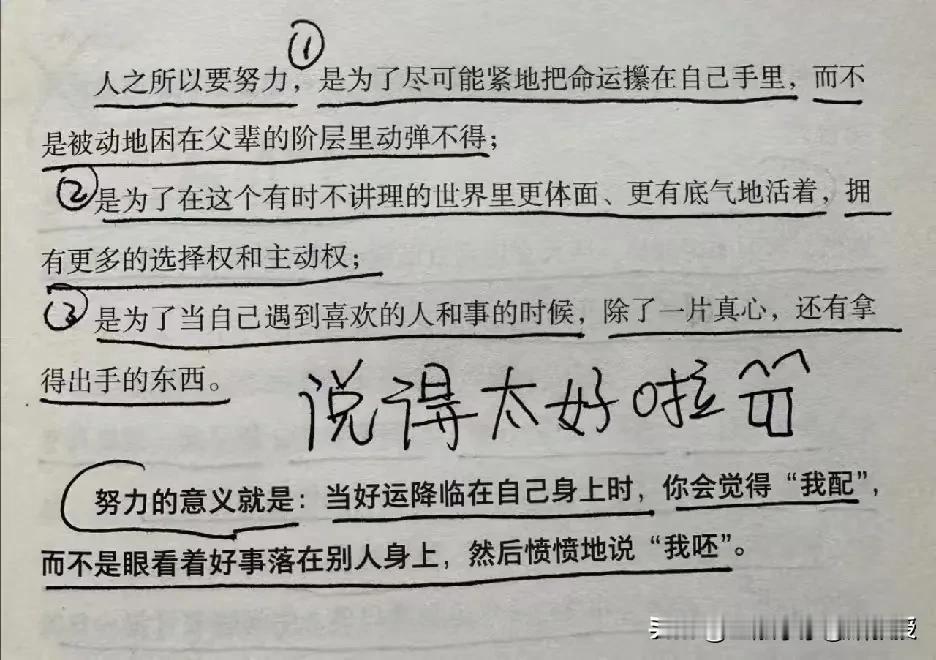 ①
人之所以要努力，是为了尽可能紧地把命运攥在自己手里，而不
是被动地困在父辈的阶层里动弹不得；
②是为了在这个有时不讲理的世界里更体面、更有底气地活着，拥
有更多的选择权和主动权；
③是为了当自己遇到喜欢的人和事的时候，除了一片真心，还有拿
得出手的东西。
说得太好啦
努力的意义就是：当好运降临在自己身上时，你会觉得“我配”，
而不是眼看着好事落在别人身上，然后愤愤地说“我呸”。